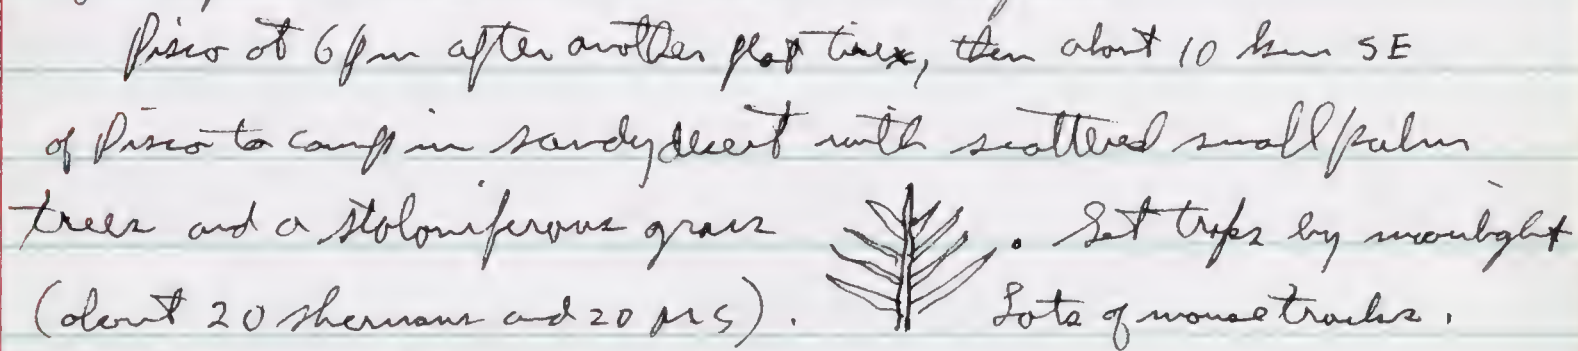 Pisco at 6 pm after another flat tire, then about 10 km SE
of Pisco to camp in sandy desert with scattered small palm
trees and a stoloniferous grass . Set traps by moonlight
(about 20 shermans and 20 MS). Lots of mouse tracks.